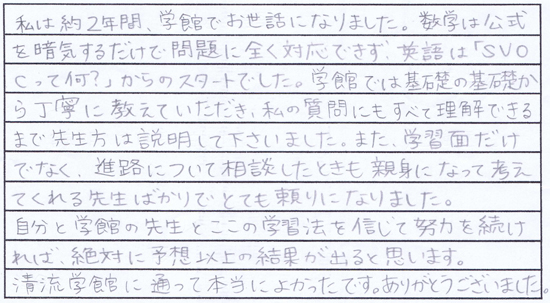 私は約2年間、学館でお世話になりました。数学は公式
を暗気するだけで問題に全く対応できず、英語は「SVO
Cって何?」からのスタートでした。学館では基礎の基礎か
ら丁寧に教えていただき、私の質問にもすべて理解できる
まで先生方は説明して下さいました。また、学習面だけ
でなく、進路について相談したときも親身になって考え
てくれる先生ばかりでとても頼りになりました。
自分と学館の先生とここの学習法を信じて努力を続け
れば、絶対に予想以上の結果が出ると思います。
清流学館に通って本当によかったです。ありがとうございました。